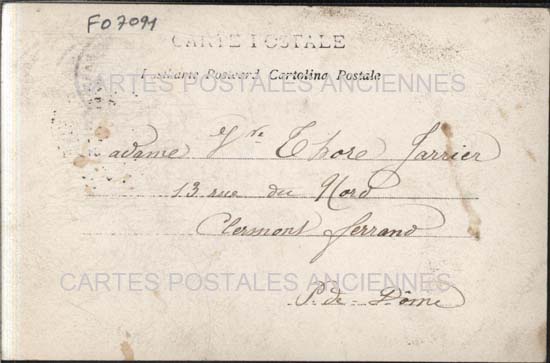 FO7091
CARTE POSTALE
Postkarte Postcard Cartolina Postale
CARTES POSTALES ANCIENNES
Madame Vve Thore Jarrier
13 rue du Nord
Clermont Ferrand
CARTES POSTALES ANCIENNES
P.-de-Dôme